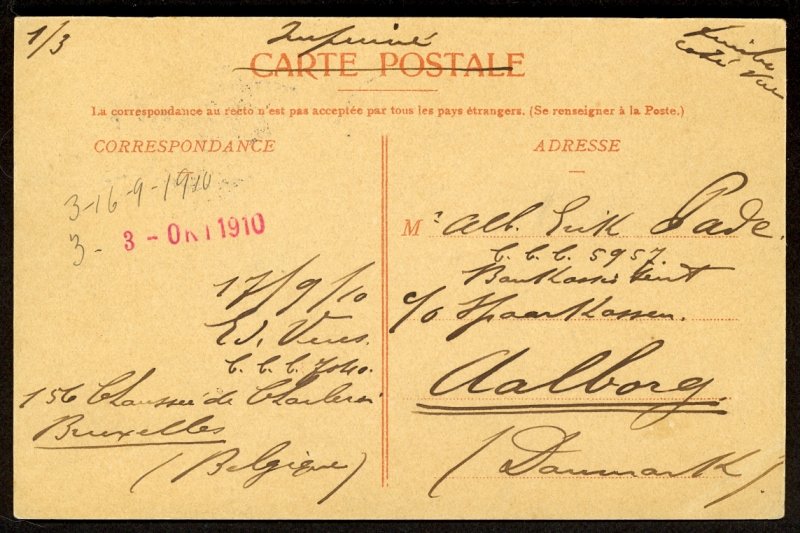 1/3
Imprimé
Timbre
coté Vue
CARTE POSTALE
La correspondance au recto n'est pas acceptée par tous les pays étrangers. (Se renseigner à la Poste.)
CORRESPONDANCE
ADRESSE
3-16-9-1910
3-
3-OKT1910
17/9/10
Ed. Veres.
C.C.C. 7040.
156 Chaussée de Charleroi
Bruxelles
(Belgique)
Mr. Alb. Erik Pade.
C.C.C. 5957
c/o Spaarkassen.
Aalborg.
(Danmark)